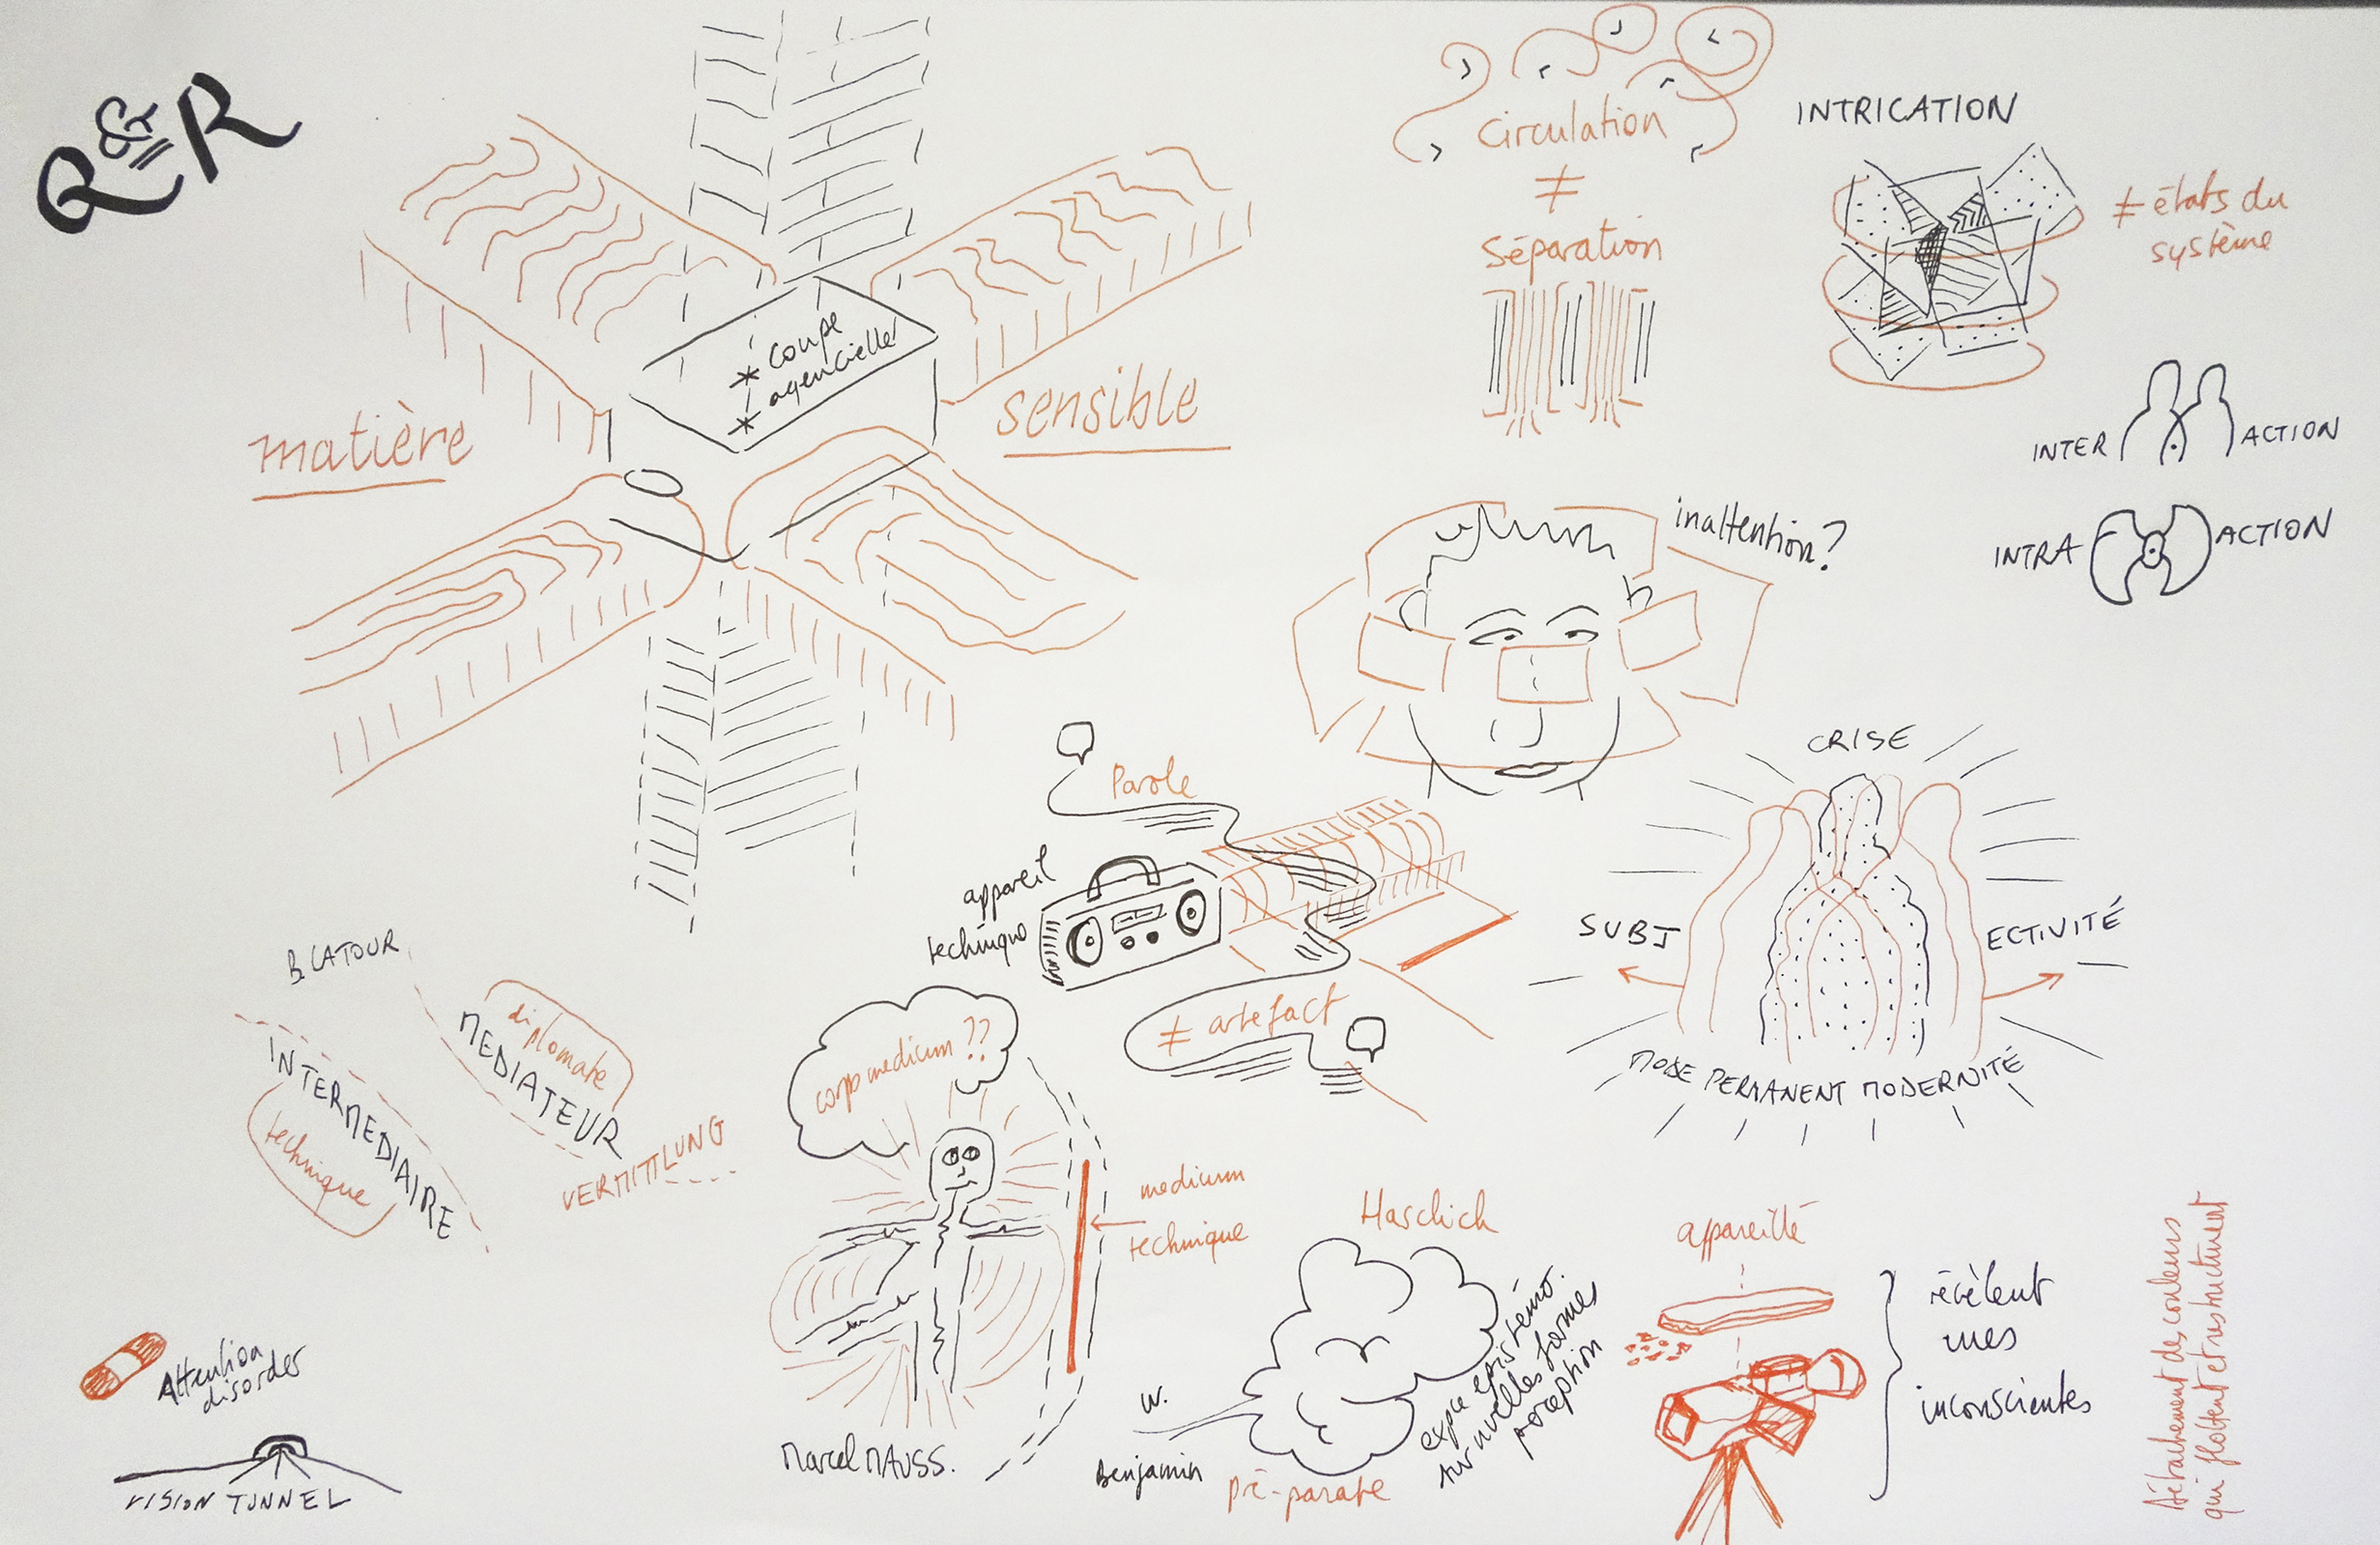 Q&R
* coupe
* agencielle
matière
sensible
Circulation
≠
Séparation
INTRICATION
≠ états du
système
INTER ACTION
INTRA ACTION
inattention?
Parole
appareil
technique
≠ artefact
CRISE
SUBJ ECTIVITÉ
MODE PERMANENT MODERNITÉ
B. LATOUR
diplomate
MEDIATEUR
INTERMEDIAIRE
technique
VERMITTLUNG
corps medium??
medium
technique
Marcel MAUSS.
Haschich
W.
Benjamin
Pré-parate
sur nvelles formes
perception
appareillé
révèlent
mes
inconscientes
Détachement des couleurs
qui flottent et restructurent
Attention
disorder
VISION TUNNEL